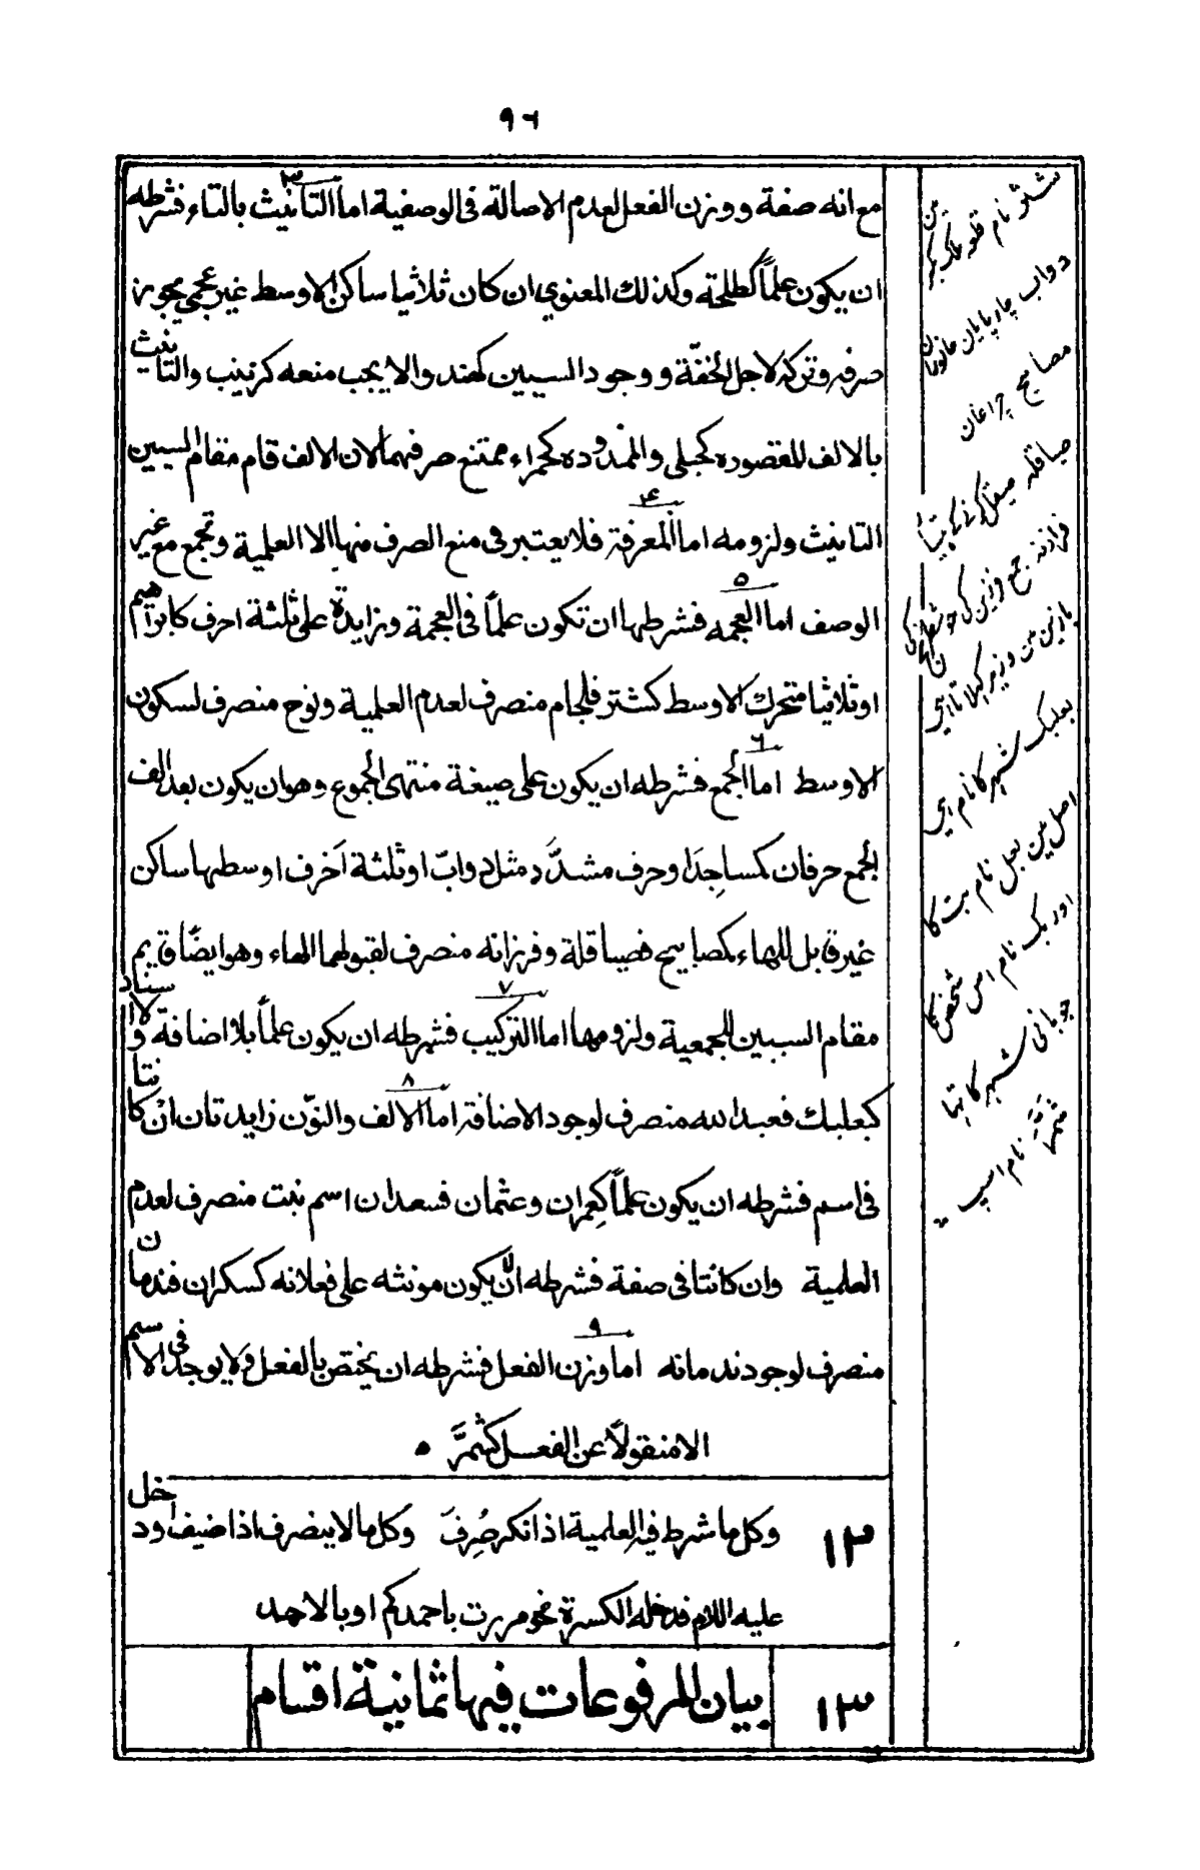 ٩٦
مع انه صفة ووزن الفعل لعدم الاصالة فى الوصفية اما التانيث بالتاء فشرطه
٣
ان يكون علماً كطلحة وكذلك المعنوي ان كان ثلاثيا ساكن الاوسط غير عجمي يجوز
صرفه وتركه لاجل الخفّة ووجود السببين كهند والا يجب منعه كزينب والتانيث
بالالف المقصوره كحبلى والممدوده كحمراء ممتنع صرفهما لان الالف قام مقام السببين
التانيث ولزومه اما المعرفة فلا يعتبر فى منع الصرف منها الا العلمية وتجمع مع غير
۴
الوصف اما العجمه فشرطها ان تكون علماً فى العجمة وزايدة على ثلثة احرف كابراهيم
۵
او ثلاثيا متحرك الاوسط كشتر فلجام منصرف لعدم العلمية ونوح منصرف لسكون
الاوسط اما الجمع فشرطه ان يكون على صيغة منتهى الجموع وهو ان يكون بعد الف
٦
الجمع حرفان كمساجِدَ او حرف مشدَّد مثل دوابّ او ثلثة اَحرف اوسطها ساكن
غير قابل للهاء كمصابيح فصياقلة وفرزانه منصرف لقبولهما الهاء وهو ايضًا قايم
مقام السببين للجمعية ولزومها اما التركيب فشرطه ان يكون علماً بلا اضافة ولا اسناد
٧
كبعلبك فعبد الله منصرف لوجود الاضافة اما الالف والنوّن زايدتان انْ كانتا
٨
فى اسم فشرطه ان يكون علماً كعِمران وعثمان فسعدان اسم نبت منصرف لعدم
العلمية وان كانتا فى صفة فشرطه ان لا يكون مونثه على فعلانه كسكران فندمان
منصرف لوجود ندمانه اما وزن الفعل فشرطه ان يختص بالفعل ولا يوجد فى الاسم
٩
الا منقولًا عن الفعل كشمَّرَ ٥
١٢ وكل ما شرط فيه العلمية اذا نكر صُرِفَ وكل ما لا ينصرف اذا ضيف او دخل
عليه اللام فدخله الكسرة نحو مررت باحمدكم او بالاحمد
١٣ بيان المرفوعات فيها ثمانية اقسام
دواب چارپايان
مصابيح چراغان
بعلبک شہر کا نام ہی
اصل مین بعل نام بت کا
اور بک نام اس شخص کا
جو بانی شہر کا تہا
نام اسپ